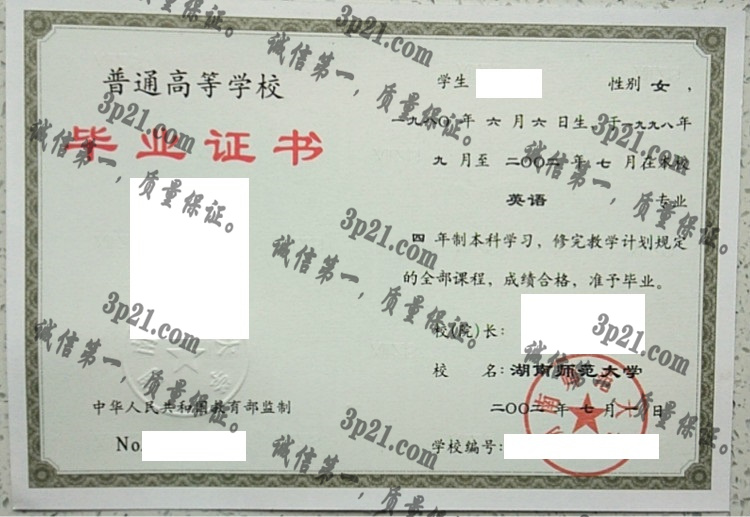 普通高等学校
毕业证书
中华人民共和国教育部监制
No.
学生 性别 女 ,
一九八〇年 六 月 六 日生 , 于一九九八年
九 月至 二〇〇二 年 七 月在本校
英语 专业
四 年制本科学习, 修完教学计划规定
的全部课程, 成绩合格, 准予毕业。
校(院)长:
校 名: 湖南师范大学
二〇〇二 年 七 月 一 日
学校编号:
3p21.com
诚信第一, 质量保证。
3p21.com
诚信第一, 质量保证。
3p21.com
诚信第一, 质量保证。
3p21.com
诚信第一, 质量保证。
3p21.com
诚信第一, 质量保证。
3p21.com
诚信第一, 质量保证。
3p21.com
诚信第一, 质量保证。